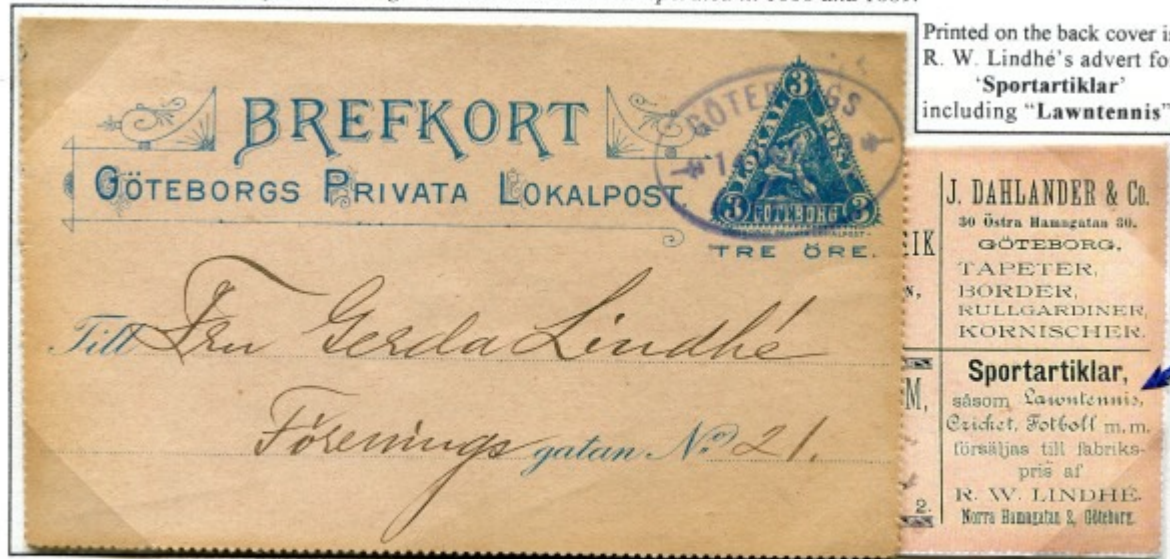 Printed on the back cover is
R. W. Lindhé's advert for
'Sportartiklar'
including "Lawntennis"
BREFKORT
GÖTEBORGS PRIVATA LOKALPOST
GÖTEBORGS
3
LOKAL POST
3 GÖTEBORG 3
TRE ÖRE.
Till Fru Gerda Lindhé
Förenings gatan No 21.
J. DAHLANDER & Co.
30 Östra Hamngatan 30.
GÖTEBORG.
TAPETER,
BORDER,
RULLGARDINER,
KORNISCHER.
Sportartiklar,
såsom Lawntennis,
Cricket, Fotboll m.m.
försäljas till fabriks-
pris af
R. W. LINDHÉ.
Norra Hamngatan 2, Göteborg.